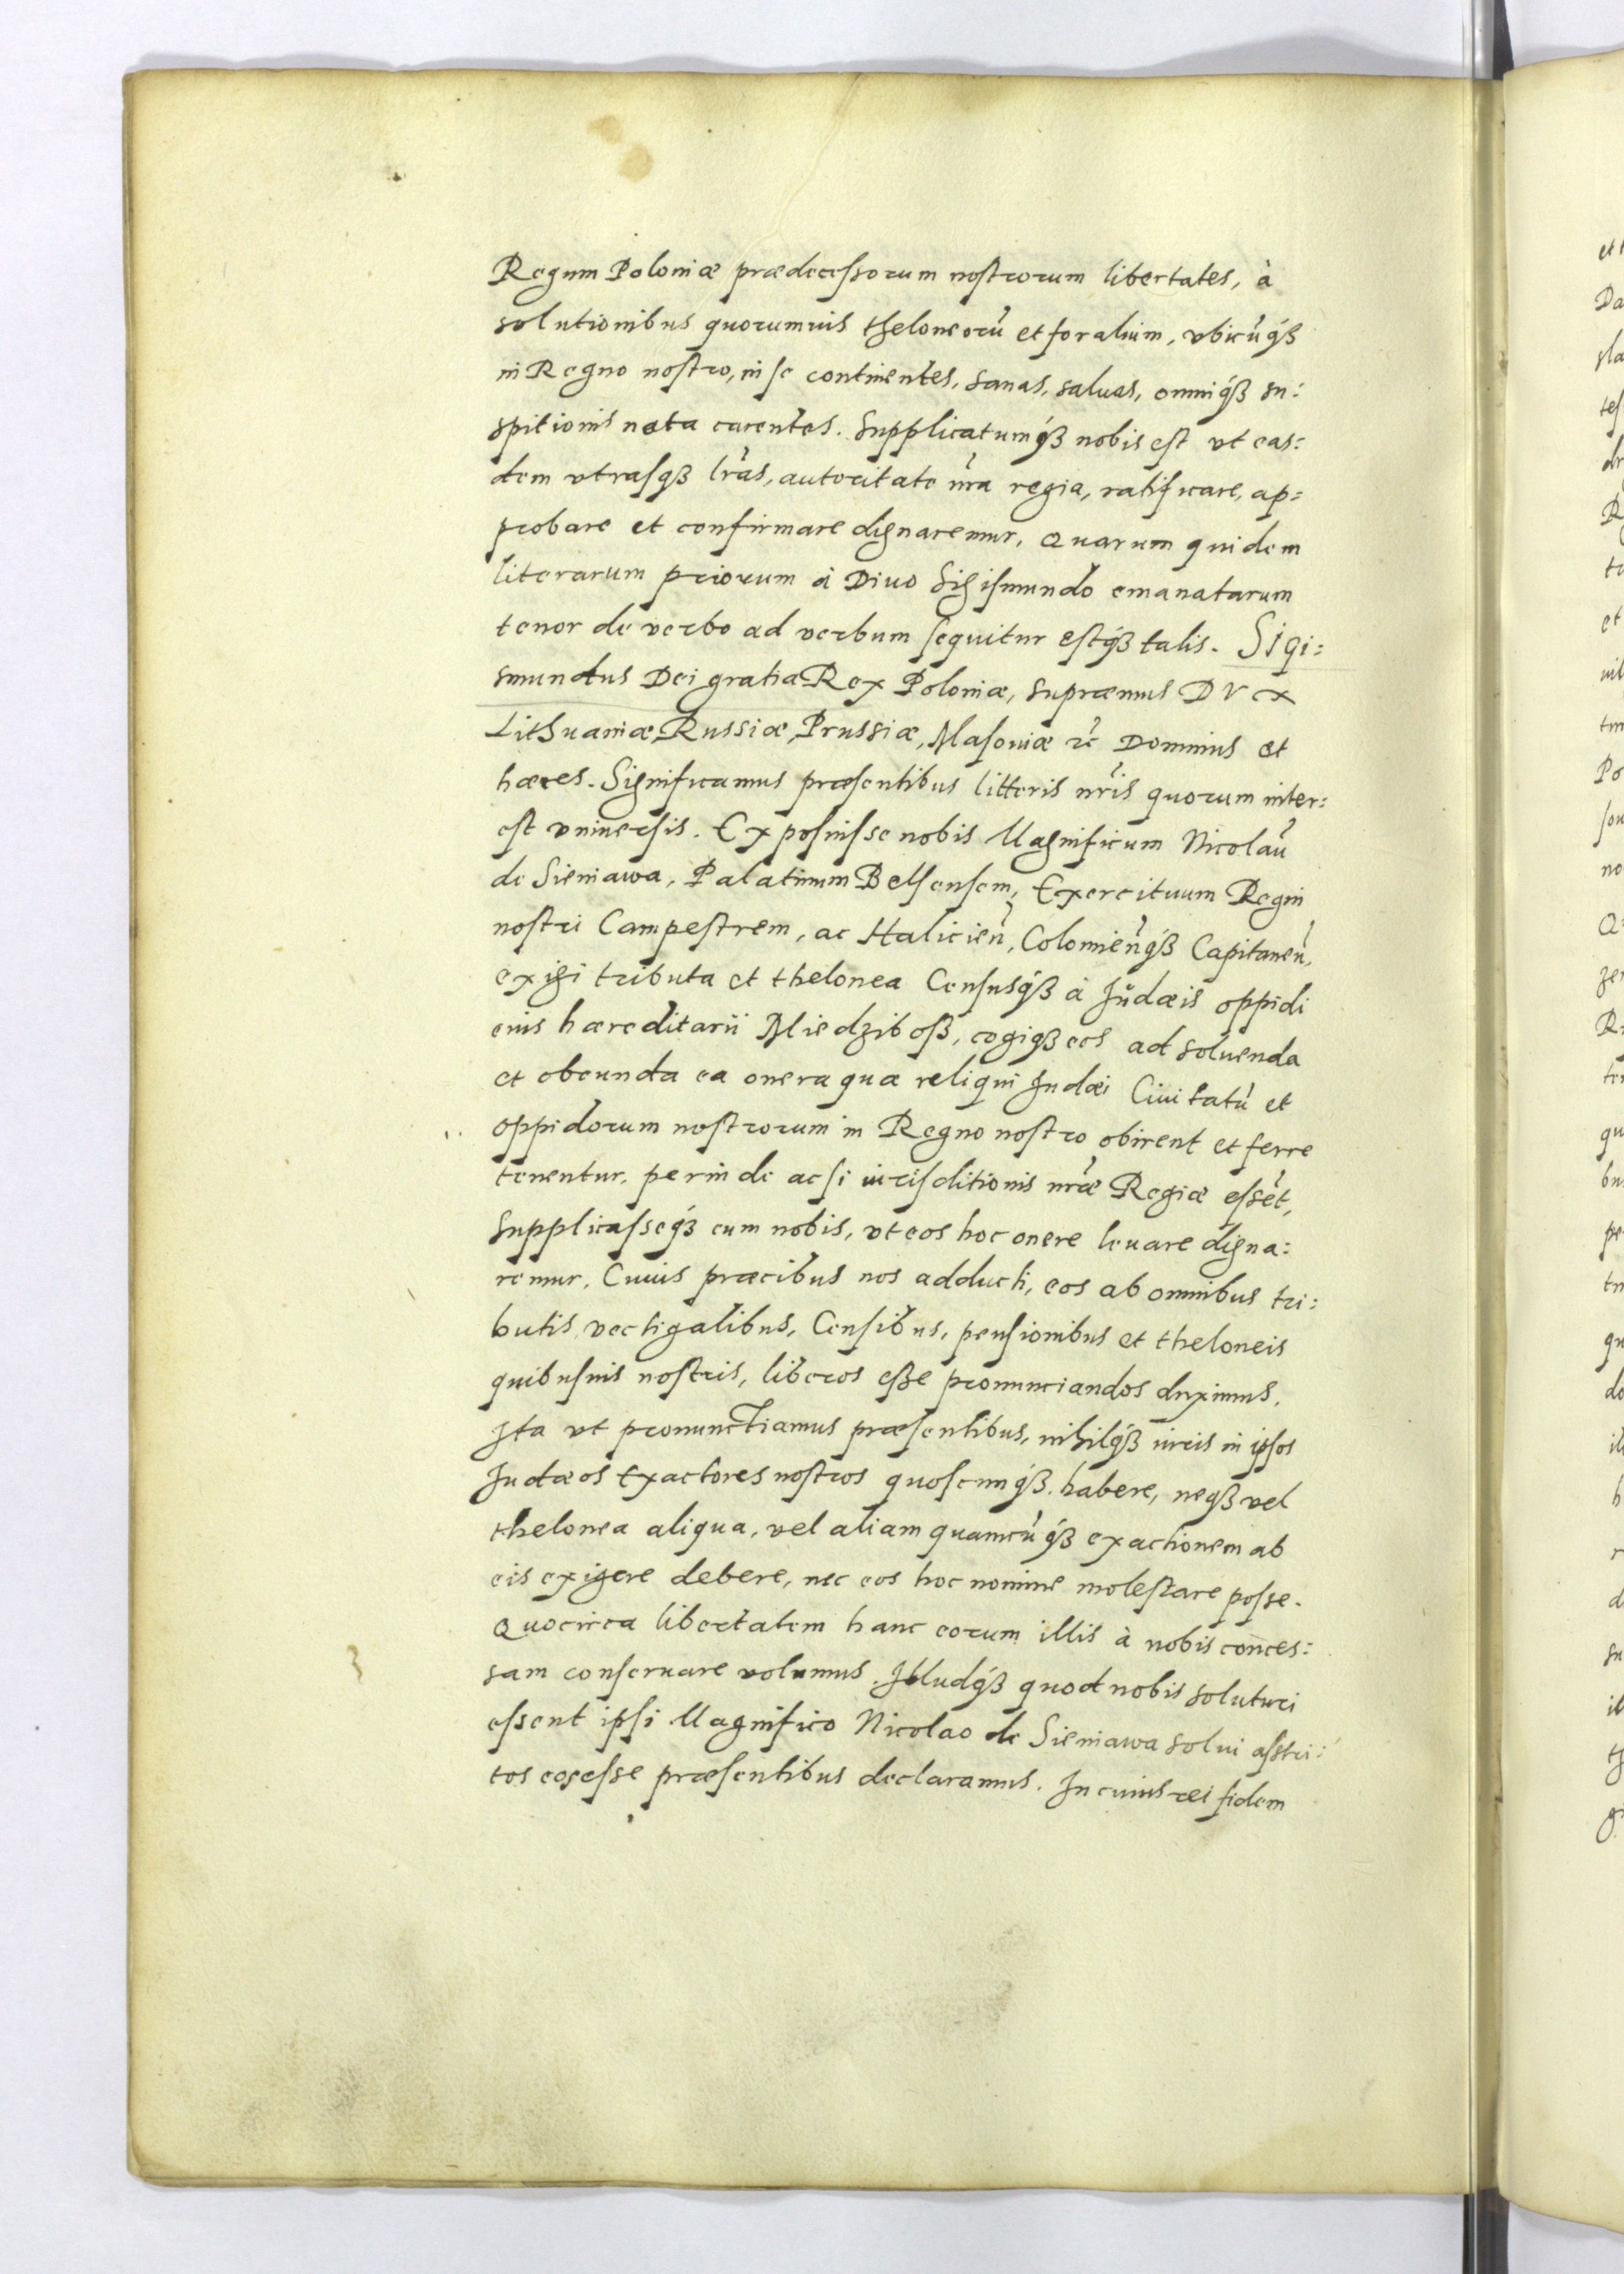 Regum Poloniæ prædecessorum nostrorum libertates, à
solutionibus quorumuis theloneorũ et foralium, vbicũq́ꝫ
in Regno nostro, in se continentes, sanas, saluas, omniq́ꝫ su:
spitionis nota carentes. Supplicatumq́ꝫ nobis est vt eas:
dem vtrasqꝫ lr̃as, autoritate nr̃a regia, ratificare, ap:
probare et confirmare dignaremur. Quarum quidem
literarum priorum à Diuo Sigismundo emanatarum
tenor de verbo ad verbum sequitur estq́ꝫ talis. Sigi:
smundus Dei gratia Rex Poloniæ, supræmus DVx
Lithuaniæ, Russiæ, Prussiæ, Masouiæ ꝛc̃ Dominus et
hæres. Significamus præsentibus litteris nr̃is quorum inter:
est vniuersis. Exposuisse nobis Magnificum Nicolaũ
de Sieniawa, Palatinum Belsensem, Exercituum Regni
nostri Campestrem, ac Halicień, Colomieńq́ꝫ Capitaneũ,
exigi tributa et thelonea Censusq́ꝫ à Iudæis oppidi
eius hæreditarii Miedziboß, cogiqꝫ eos ad soluenda
et obeunda ea onera quæ reliqui Iudæi Ciuitatũ et
oppidorum nostrorum in Regno nostro obirent et ferre
tenentur, perinde ac si iurisditionis nr̃æ Regiæ essẽt,
Supplicasseq́ꝫ eum nobis, vt eos hoc onere leuare digna:
remur. Cuius præcibus nos adducti, eos ab omnibus tri:
butis, vectigalibus, Censibus, pensionibus et theloneis
quibusuis nostris, liberos eße pronunciandos duximus.
Ita vt pronunctiamus præsentibus, nihilq́ꝫ iuris in ipsos
Iudæos Exactores nostros quoscunq́ꝫ habere, neqꝫ vel
thelonea aliqua, vel aliam quamcũq́ꝫ exactionem ab
eis exigere debere, nec eos hoc nomine molestare posse.
Quocirca libertatem hanc eorum illis à nobis conces:
sam conseruare volumus. Illudq́ꝫ quod nobis soluturi
essent ipsi Magnifico Nicolao de Sieniawa solui astri:
tos eos esse præsentibus declaramus. In cuius rei fidem